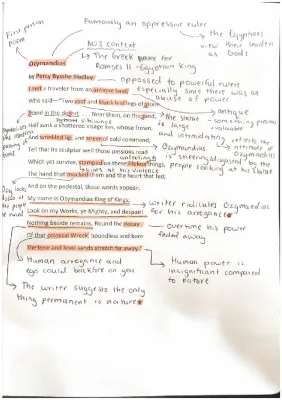 First person poem
Famously an oppressive ruler
the Egyptians view their leaders as Gods
AO3 context
↳ The Greek name for Ramses II - Egyptian king
Ozymandias
by Percy Bysshe Shelley
oppossed to powerful rulers
Especially since there was an abuse of power
I met a traveler from an antique land
Who said—"Two vast and trunkless legs of stone
Stand in the desert. Near them, on the sand,
Half sunk a shattered visage lies, whose frown,
And wrinkled lip, and sneer of cold command,
Tell that its sculptor well those passions read
Which yet survive, stamped on these lifeless things,
The hand that mocked them and the heart that fed;
And on the pedestal, these words appear:
My name is Ozymandias, King of Kings;
Look on my Works, ye Mighty, and despair!
Nothing beside remains. Round the decay
Of that colossal Wreck, boundless and bare
The lone and level sands stretch far away."
antique - something valuable
the statue is large and intimidating
reflects the attitude of Ozymandias
Ozymandias is sneering
by the people looking at his statue
at his violence
writer ridicules Ozymandias for his arrogance
overtime his power faded away
Human power is insignificant compared to nature
Human arrogance and ego could backfire on you
The writer suggests the only thing permanent is nature